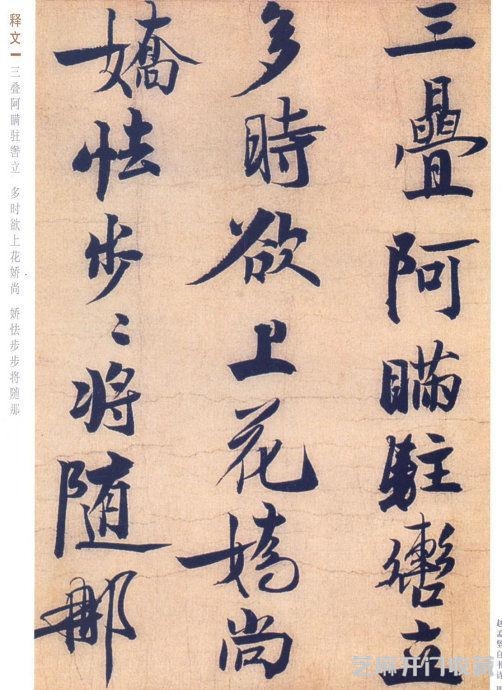 三疊阿瞞駐轡立
多時欲上花嬌尚
嬌怯步〻將随那
释文
三叠阿瞒驻辔立 多时欲上花娇尚 娇怯步步将随那